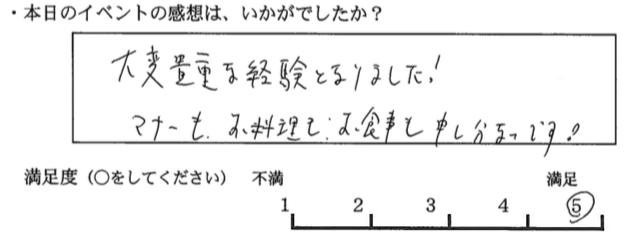 ・本日のイベントの感想は、いかがでしたか？
大変貴重な経験となりました!
マナーも、お料理も、お食事も申し分なっです!
満足度（○をしてください） 不満 満足
1 2 3 4 5